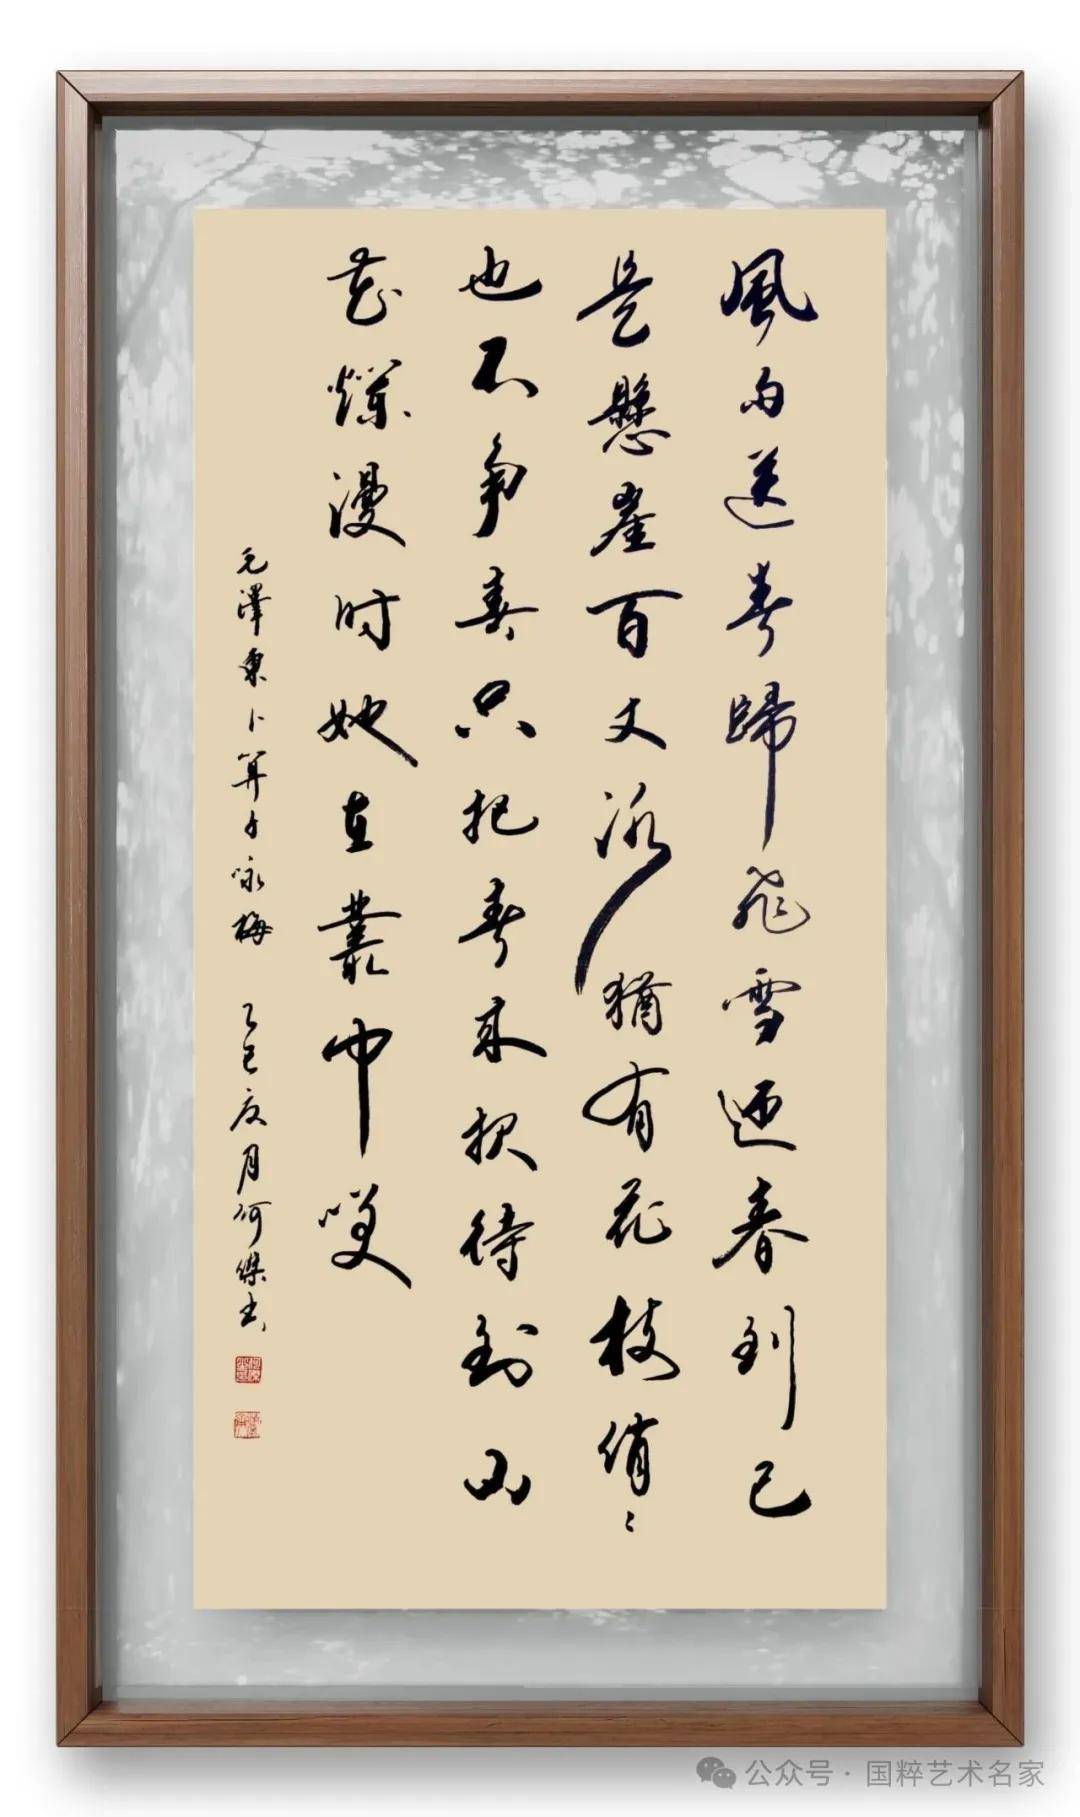 風雨送春歸飛雪迎春到已
是懸崖百丈冰猶有花枝俏〻
也不争春只把春来报待到山
花爛漫时她在叢中咲
毛澤東卜算子咏梅 乙巳夏月何傑书
公众号 · 国粹艺术名家